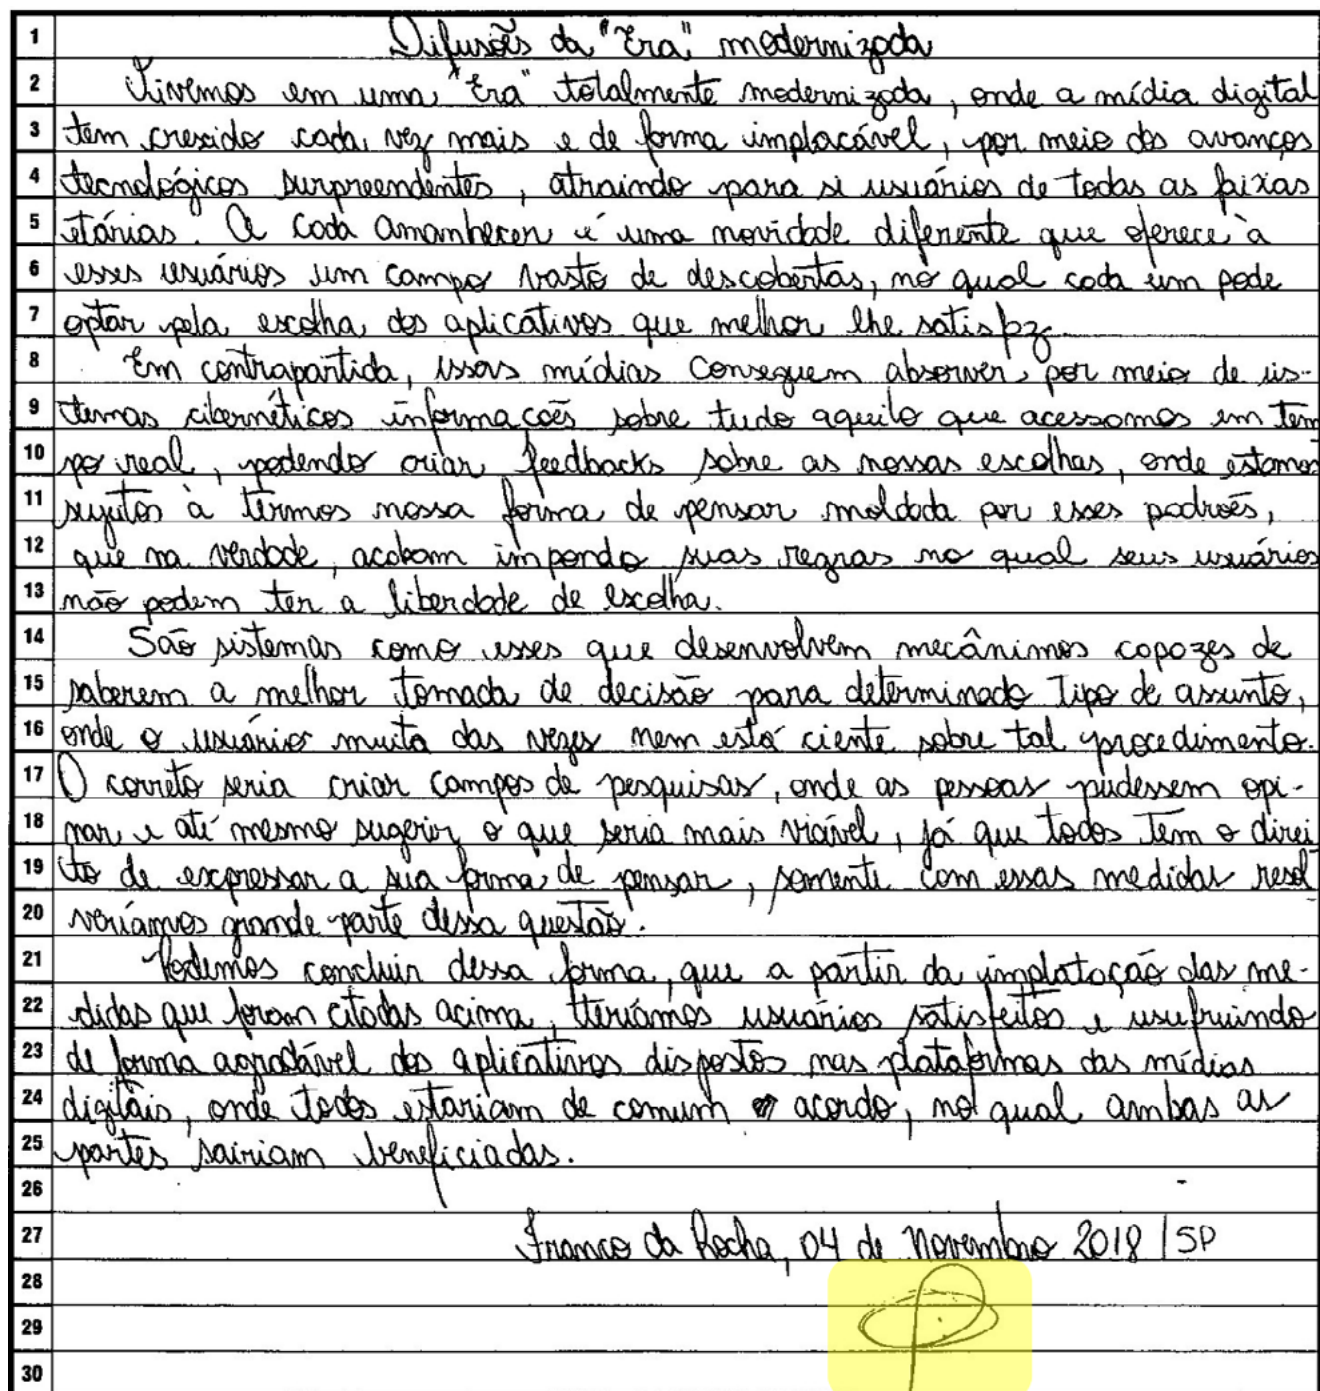 1 Difusões da "Era" modernizada
2 Vivemos em uma "Era" totalmente modernizada, onde a mídia digital
3 tem crescido cada vez mais e de forma implacável, por meio dos avanços
4 tecnológicos surpreendentes, atraindo para si usuários de todas as faixas
5 etárias. A cada amanhecer é uma novidade diferente que oferece à
6 esses usuários um campo vasto de descobertas, no qual cada um pode
7 optar pela escolha dos aplicativos que melhor lhe satisfaz.
8 Em contrapartida, essas mídias conseguem absorver, por meio de sis-
9 temas cibernéticos informações sobre tudo aquilo que acessamos em tem
10 po real, podendo criar feedbacks sobre as nossas escolhas, onde estamos
11 sujeitos à termos nossa forma de pensar moldada por esses padrões,
12 que na verdade, acabam impondo suas regras no qual seus usuários
13 não podem ter a liberdade de escolha.
14 São sistemas como esses que desenvolvem mecânimos capazes de
15 saberem a melhor tomada de decisão para determinado tipo de assunto,
16 onde o usuário muita das vezes nem está ciente sobre tal procedimento.
17 O correto seria criar campos de pesquisas, onde as pessoas pudessem opi-
18 nar e até mesmo sugerir o que seria mais viável, já que todos tem o direi
19 to de expressar a sua forma de pensar, somente com essas medidas resol
20 veríamos grande parte dessa questão.
21 Podemos concluir dessa forma, que a partir da implatação das me-
22 didas que foram citadas acima, teriámos usuários satisfeitos e usufruindo
23 de forma agradável dos aplicativos dispostos nas plataformas das mídias
24 digitais, onde todos estariam de comum acordo, no qual ambas as
25 partes sairiam beneficiadas.
26
27 Franco da Rocha, 04 de Novembro 2018 / SP
28
29
30